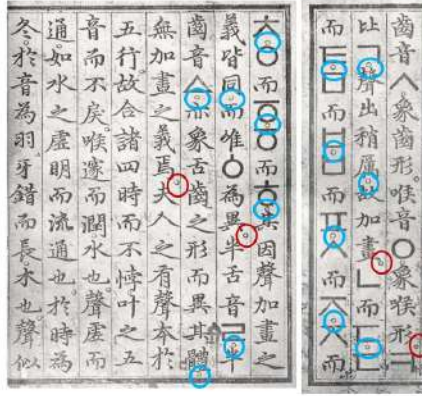 齒音ㅅ象齒形。喉音ㅇ象喉形。ㅋ
比ㄱ。聲出稍厲。故加畫。ㄴ而ㄷ。ㄷ
而ㅌ。ㅁ而ㅂ。ㅂ而ㅍ。ㅅ而ㅈ。ㅈ而
ㅊ。ㅇ而ㆆ。ㆆ而ㅎ。其因聲加畫之
義皆同。而唯ㆁ為異。半舌音ㄹ。半
齒音ㅿ。亦象舌齒之形而異其體。
無加畫之義焉。夫人之有聲本於
五行。故合諸四時而不悖。叶之五
音而不戾。喉邃而潤。水也。聲虛而
通。如水之虛明而流通也。於時為
冬。於音為羽。牙錯而長。木也。聲似